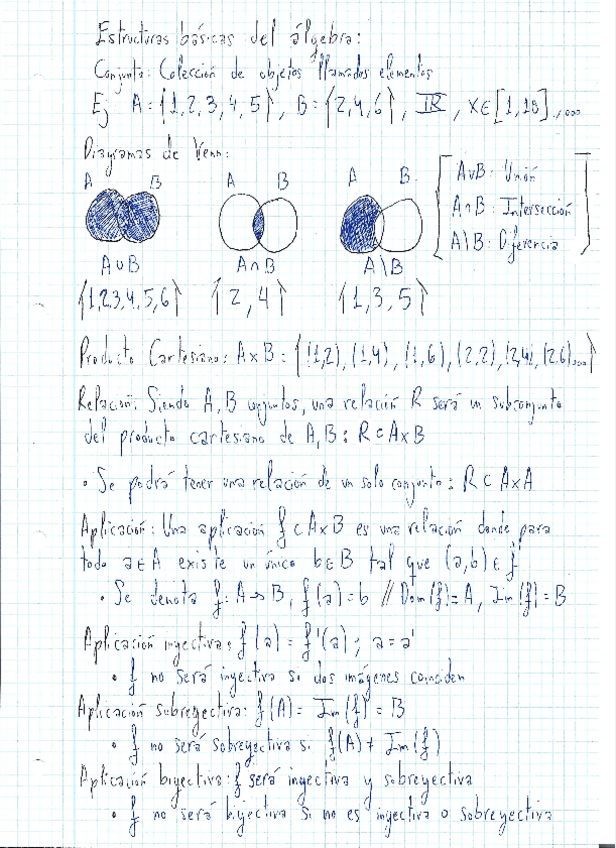 Estructuras básicas del álgebra:
Conjunto: Colección de objetos llamados elementos
Ej A = {1,2,3,4,5}, B = {2,4,6}, ℝ, x∈[1,18],...
Diagramas de Venn:
A B A B A B
A∪B: Unión
A∩B: Intersección
A\B: Diferencia
A∪B A∩B A\B
{1,2,3,4,5,6} {2,4} {1,3,5}
Producto Cartesiano: A×B = {(1,2), (1,4), (1,6), (2,2), (2,4), (2,6)...}
Relación: Siendo A, B conjuntos, una relación R será un subconjunto
del producto cartesiano de A, B: R⊂A×B
• Se podrá tener una relación de un solo conjunto: R⊂A×A
Aplicación: Una aplicación f⊂A×B es una relación donde para
todo a∈A existe un único b∈B tal que (a,b)∈f
• Se denota f: A→B, f(a)=b // Dom(f)=A, Im(f)=B
Aplicación inyectiva: f(a) = f'(a); a=a'
• f no será inyectiva si dos imágenes coinciden
Aplicación sobreyectiva: f(A) = Im(f) = B
• f no será sobreyectiva si f(A) ≠ Im(f)
Aplicación biyectiva: f será inyectiva y sobreyectiva
• f no será biyectiva si no es inyectiva o sobreyectiva